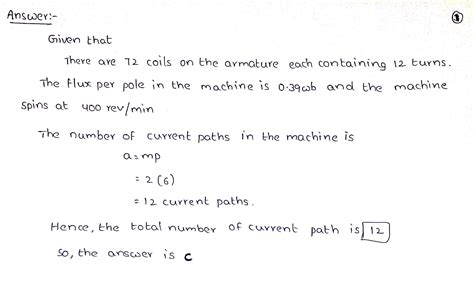 Answer:- ①
Given that
There are 72 coils on the armature each containing 12 turns.
The flux per pole in the machine is 0.39wb and the machine
spins at 400 rev/min
The number of current paths in the machine is
a=mp
= 2(6)
= 12 current paths.
Hence, the total number of current path is 12
So, the answer is c